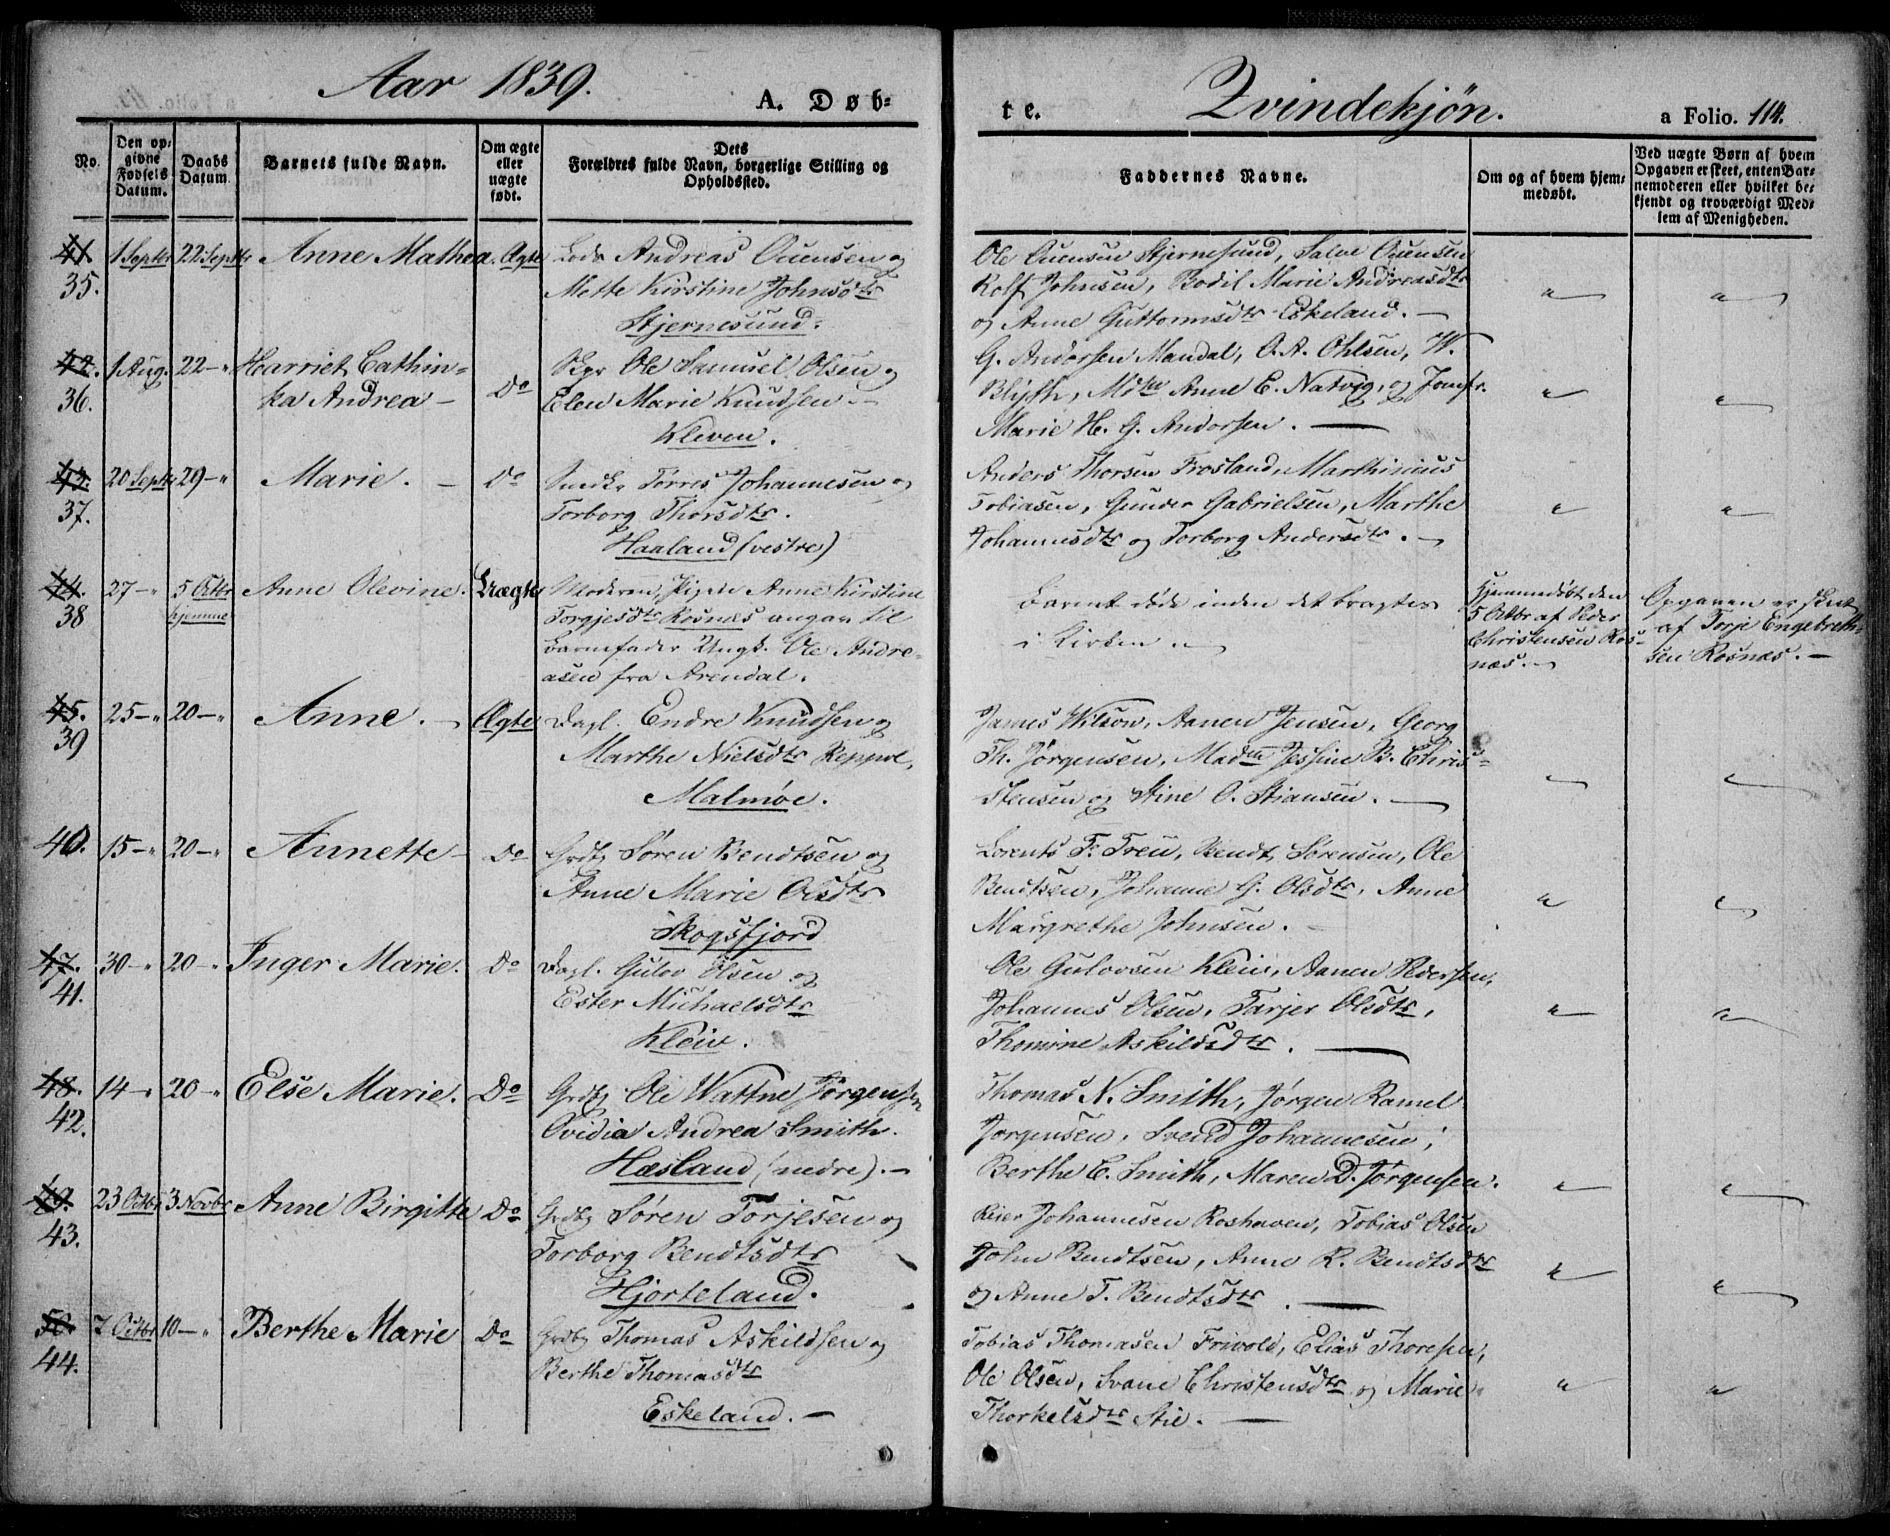 Aar 1839.
A. Døb-
No.
Den op-
givne
Fødsels
Datum.
Daabs
Datum
Barnets fulde Navn.
Om ægte
eller
uægte
født.
Dets
Forældres fulde Navn, borgerlige Stilling og
Opholdssted.
41
35.
1 Septbr
22 Septbr
Anne Mathea.
Ægte
Lods Andreas Ouensen og
Mette Kirstine Johnsdtr
Stjernesund.
42.
36.
1 Aug.
22 — "
Harriet Cathin-
ka Andrea —
Do
Skpr Ole Samuel Olsen og
Elen Marie Knudsen. —
Kleven.
43.
37.
20 Septbr
29 — "
Marie. —
Do
Smdk. Tørres Johannesen og
Torborg Thorsdtr.
Haaland (vestre)
44.
38
27 — "
5 Octbr
hjemme
Anne Olevine.
Uægte
Moderen, Pigen Anne Kirstine
Torgjesdtr Rosnæs angav til
Barnefader Ungk. Ole Andre-
asen fra Arendal.
45.
39
25 — "
20 — "
Anne. —
Ægte
Dagl. Endre Knudsen og
Marthe Nielsdtr Reppve,
Malmøe.
40.
15 — "
20 — "
Annette —
Do
Grdbr Søren Bendtsen og
Anne Marie Olsdtr
Skogsfjord
47.
41.
30 — "
20 — "
Inger Marie.
Do
Dagl. Gulov Olsen og
Ester Michaelsdtr
Kleiv.
48.
42.
14 — "
20 — "
Else Marie.
Do
Grdbr Ole Wattne Jørgensen
Ovidia Andrea Smith.
Hæsland (nedre). —
49.
43.
23 Octbr
3 Novbr
Anne Birgitte
Do
Grdbr Søren Torjesen og
Torborg Bendtsdtr
Hjorteland.
50.
44.
7 Octbr
10 — "
Berthe Marie
Do
Grdbr Thomas Askildsen og
Berthe Thomasdtr
Eskeland. —
te.
Qvindekjøn.
a Folio. 114.
Faddernes Navne.
Om og af hvem hjem-
medøbt.
Ved uægte Børn af hvem
Opgaven er skeet, enten Bar-
nemoderen eller hvilket be-
kjendt og troværdigt Med-
lem af Menigheden.
Ole Ouensen Stjernesund, Salve Ouensen
Rolf Johnsen, Bodil Marie Andreasdtr
og Anne Guttormsdtr Eskeland. —
G. Andorsen Mandal, O. A. Ohlsen, W.
Blyth, Mdme Anne E. Natvig, og Jomfr.
Marie H. G. Andorsen. —
Anders Thorsen Frosland, Marthinius
Tobiasen, Gunder Gabrielsen, Marthe
Johannesdtr og Torborg Andersdtr. —
Barnet døde inden det bragtes
i Kirken. —
Hjemmedøbt den
5 Octbr af Peder
Christensen Ros-
næs. —
Opgaven er skeet
af Torje Engebreth-
sen Rosnæs. —
James Wilson, Aanen Jensen, Georg
Th. Jørgensen, Madme Jessine B. Chris-
stensen og Stine O. Stiansen. —
Lorents F. Treu, Bendt Sørensen, Ole
Bendtsen, Johanne G. Olsdtr, Anne
Margrethe Johnsen.
Ole Gulovsen Kleiv, Aanen Pedersen,
Johannes Olsen, Tarjer Olsdtr,
Thomine Askildsdtr. —
Thomas N. Smith, Jørgen Ramel
Jørgensen, Svend Johannesen,
Berthe C. Smith, Maren D. Jørgensen.
Reier Johannesen Roshaven, Tobias Olsen
John Bendtsen, Anne R. Bendtsdtr
og Anne T. Bendtsdtr. —
Tobias Thomasen Frivold, Elias Thoresen,
Ole Olsen, Svane Christensdtr og Marie
Thorkelsdtr Stie. —